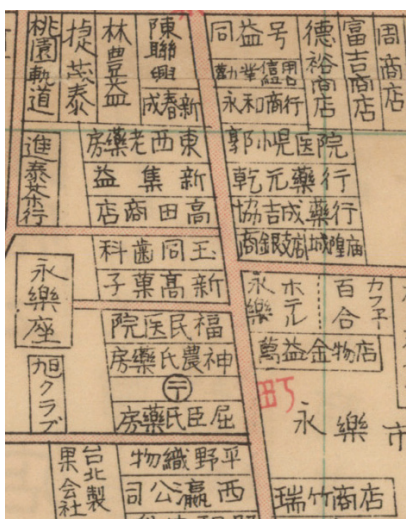 桃園軌道
捷茂泰
林豊益
陳聯興
新春成
同益号
勸業信用
永和商行
德裕商店
富吉商店
周商店
進泰茶行
東西老藥房
新集益
高田商店
郭小児医院
乾元藥行
協吉成藥行
商銀支店
城隍庙
玉同歯科
新高菓子
永樂座
旭クラブ
福民医院
神農氏藥房
〒
屈臣氏藥房
永樂
ホテル
カフエー
百合
萬益金物店
町
永樂市
台北製
果会社
平野織物
西瀛公司
瑞竹商店